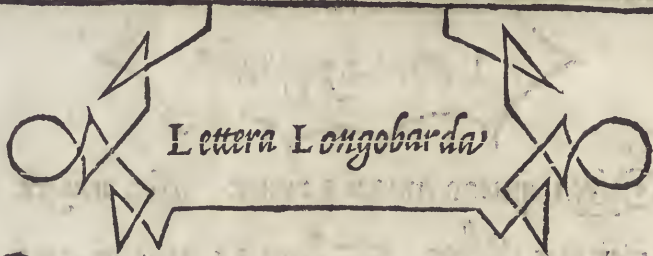 Lettera Longobarda